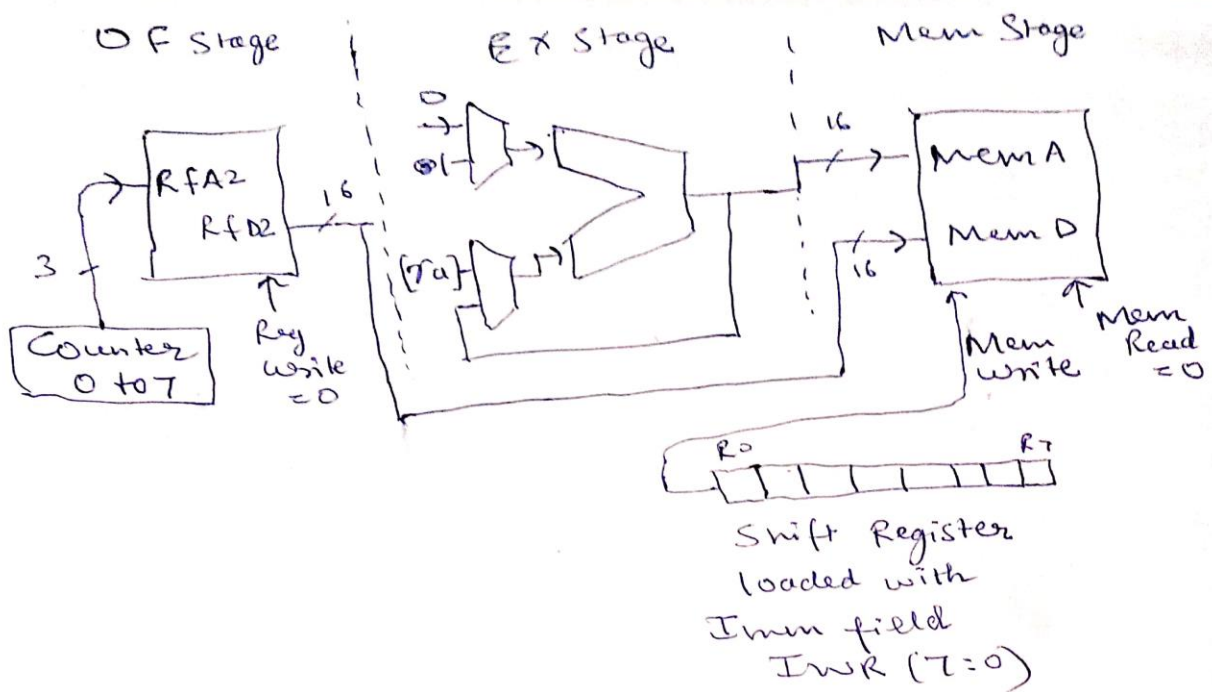 OF Stage
EX Stage
Mem Stage
0
1
16
RfA2
RfD2
16
3
Counter
0 to 7
Reg
write
=0
[ra]
MemA
Mem D
16
Mem
write
Mem
Read
=0
R0
R7
Shift Register
loaded with
Imm field
(7:0)